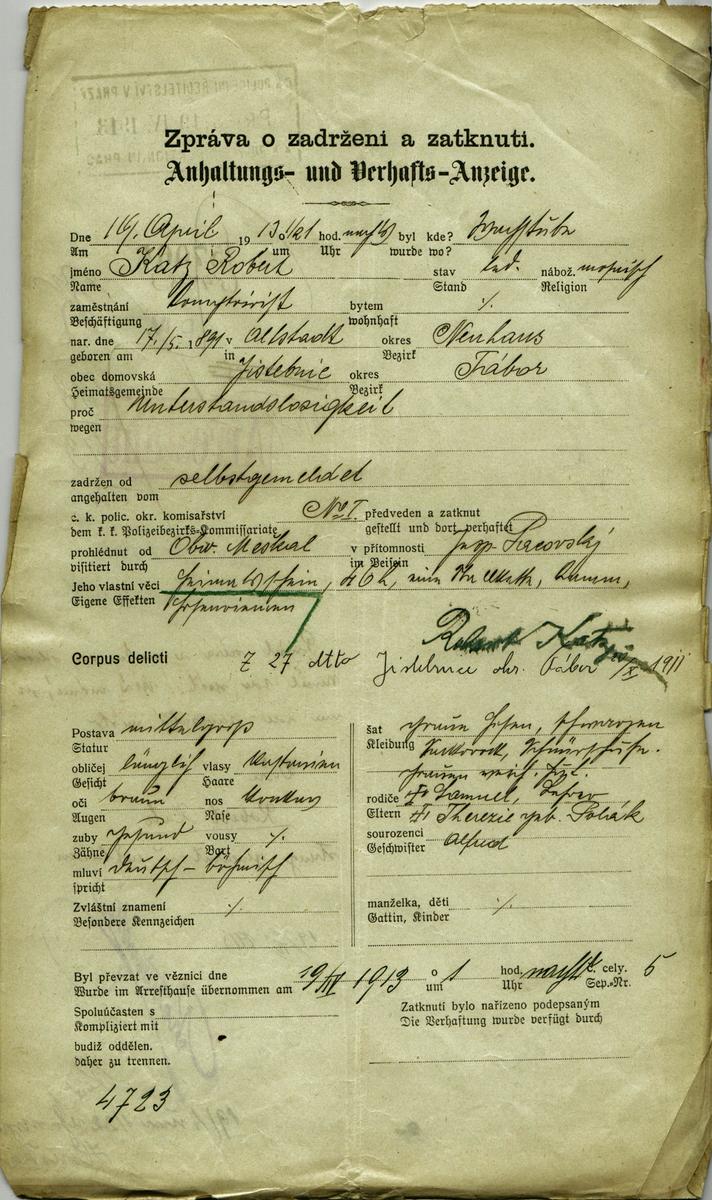 Zpráva o zadrženi a zatknuti.
Anhaltungs- und Verhafts-Anzeige.
Dne 19/. April 1913 o 1/21 hod. byl kde? Wachstube
Am um Uhr wurde wo?
jméno Katz Robert stav led. nábož. mosaisch
Name Stand Religion
zaměstnání Komptoirist bytem ./.
Beschäftigung wohnhaft
nar. dne 17./5. 1891 v Altstadt okres Neuhaus
geboren am in Bezirk
obec domovská Jistebnic okres Tábor
Heimatsgemeinde Bezirk
proč Unterstandslosigkeit
wegen
zadržen od selbstgemeldet
angehalten vom
c. k. polic. okr. komisařství No I. předveden a zatknut
dem k. k. Polizeibezirks-Kommissariate gestellt und dort verhaftet
prohlédnut od Obw. Meškal v přítomnosti Insp. Pacovský
visitiert durch im Beisein
Jeho vlastní věci Heimatschein, eine
Eigene Effekten
Robert Katz
Corpus delicti Z 27 dtto Jistebnice okr. Tábor /X 1911
Postava mittelgross
Statur
obličej länglich vlasy Kastanien
Gesicht Haare
oči braun nos konkav
Augen Nase
zuby gesund vousy ./.
Zähne Bart
mluví deutsch – böhmisch
spricht
Zvláštní znamení ./.
Besondere Kennzeichen
šat graue Hosen, schwarzen
Kleidung Sakkorock, Schnürschuhe.
rodiče Samuel,
Eltern Therezie geb. Polák
sourozenci Alfred
Geschwister
manželka, děti ./.
Gattin, Kinder
Byl převzat ve věznici dne 19/IV 1913 o 1 hod. č. cely. 5
Wurde im Arresthause übernommen am um Uhr Sep.-Nr.
Spoluúčasten s
Kompliziert mit
budiž oddělen.
daher zu trennen.
Zatknutí bylo nařízeno podepsaným
Die Verhaftung wurde verfügt durch
4723